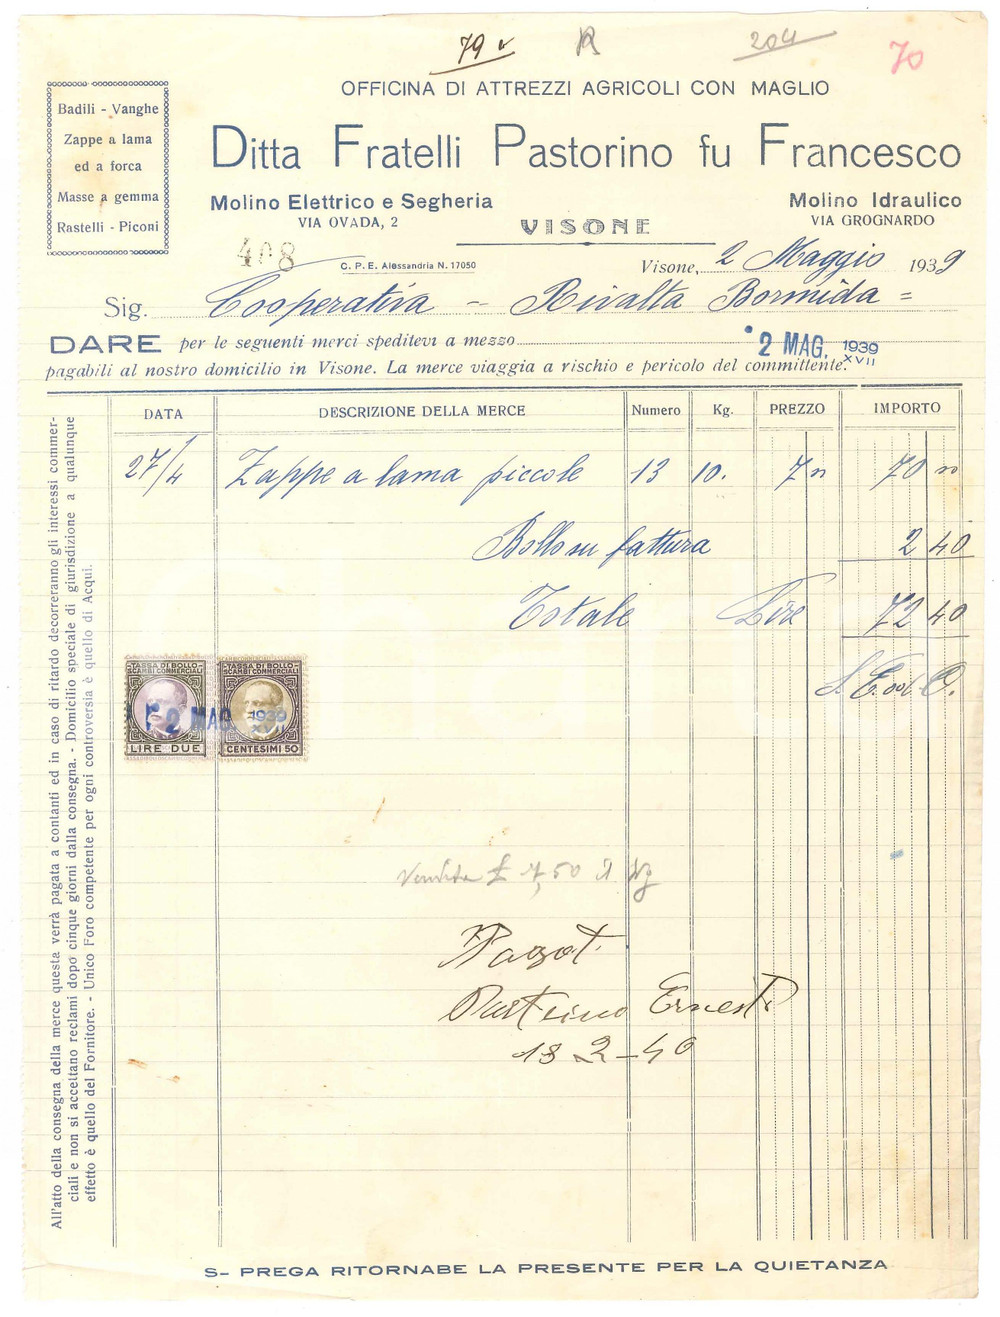 79 v
R
204
70
OFFICINA DI ATTREZZI AGRICOLI CON MAGLIO
Badili - Vanghe
Zappe a lama
ed a forca
Masse a gemma
Rastelli - Piconi
Ditta Fratelli Pastorino fu Francesco
Molino Elettrico e Segheria
VIA OVADA, 2
VISONE
Molino Idraulico
VIA GROGNARDO
408
C. P. E. Alessandria N. 17050
Visone, 2 Maggio 1939
Sig. Cooperativa - Rivalta Bormida =
DARE per le seguenti merci speditevi a mezzo
2 MAG. 1939 XVII
pagabili al nostro domicilio in Visone. La merce viaggia a rischio e pericolo del committente.
DATA DESCRIZIONE DELLA MERCE Numero Kg. PREZZO IMPORTO
27/4 Zappe a lama piccole 13 10. 7 70
Bollo su fattura 2 40
Totale Lire 72 40
S. E. od O.
TASSA DI BOLLO SCAMBI COMMERCIALI
LIRE DUE
TASSA DI BOLLO SCAMBI COMMERCIALI
CENTESIMI 50
2 MAG. 1939 XVII
Vendita £ 7,50 il Kg
Pagat
Pastorino Ernesto
13 2 - 40
All'atto della consegna della merce questa verrà pagata a contanti ed in caso di ritardo decorreranno gli interessi commer-
ciali e non si accettano reclami dopo cinque giorni dalla consegna. - Domicilio speciale di giurisdizione a qualunque
effetto è quello del Fornitore. - Unico Foro competente per ogni controversia è quello di Acqui.
S- PREGA RITORNABE LA PRESENTE PER LA QUIETANZA